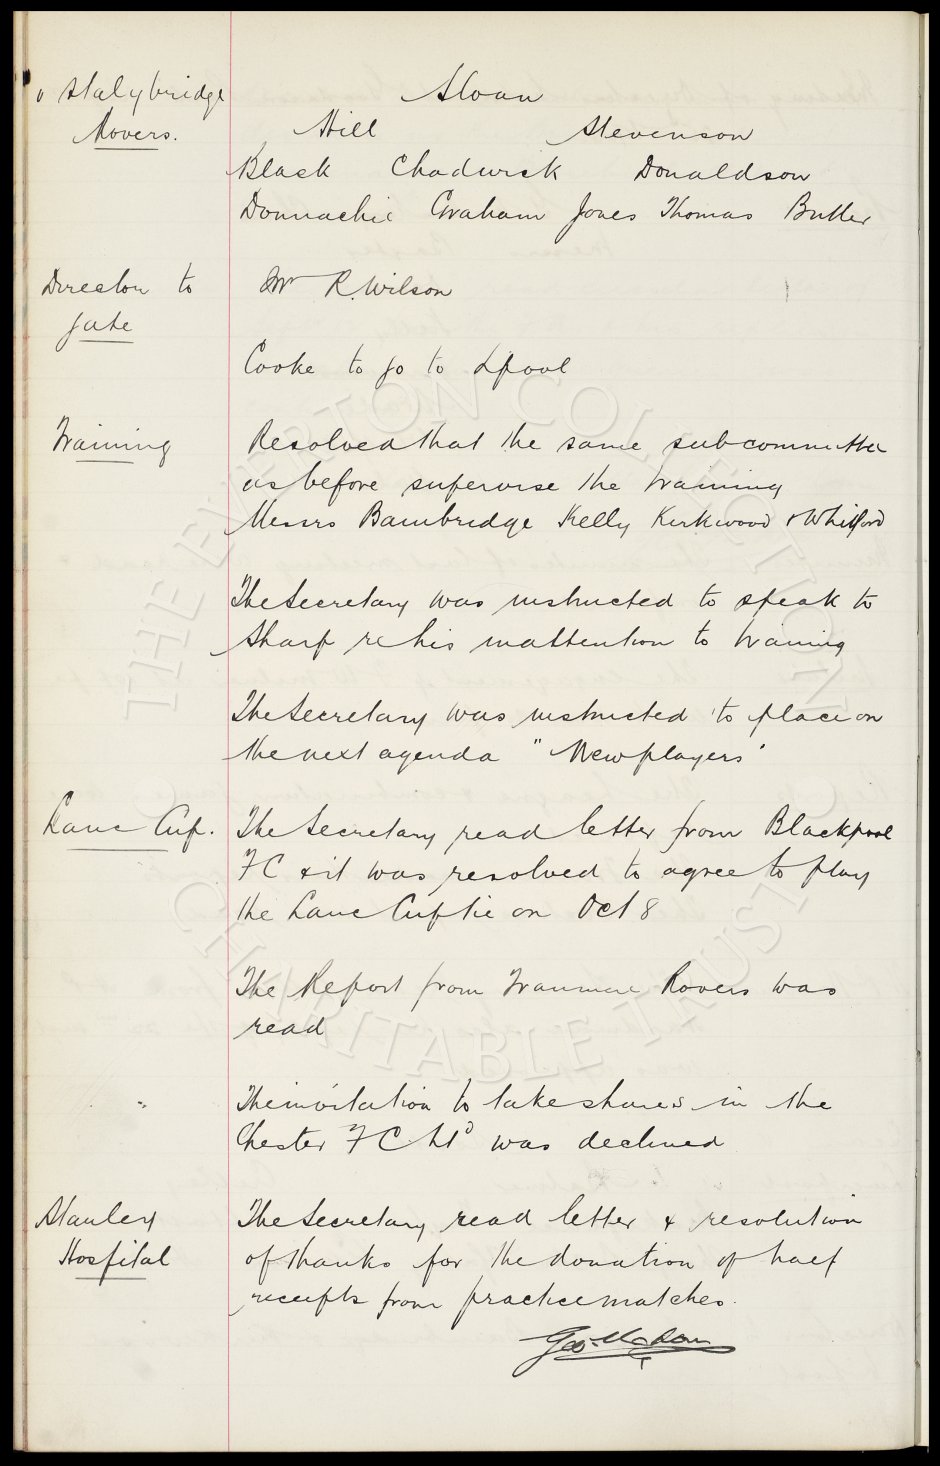 v Stalybridge Rovers.
Sloan
Hill Stevenson
Black Chadwick Donaldson
Donnachie Graham Jones Thomas Butler
Director to gate
Mr R. Wilson
Cooke to go to Lpool
Training
Resolved that the same subcommittee
as before supervise the training
Messrs Bainbridge Kelly Kirkwood & Whitford
The Secretary was instructed to speak to
Sharp re his inattention to training
The Secretary was instructed to place on
the next agenda "New players"
Lanc Cup.
The Secretary read letter from Blackpool
F C & it was resolved to agree to play
the Lanc Cup tie on Oct 8
The Report from Tranmere Rovers was
read
"
The invitation to take shares in the
Chester F C Ltd was declined
Stanley Hospital
The Secretary read letter & resolution
of thanks for the donation of half
receipts from practice matches.
Geo. Mahon
THE EVERTON COLLECTION
CHARITABLE TRUST